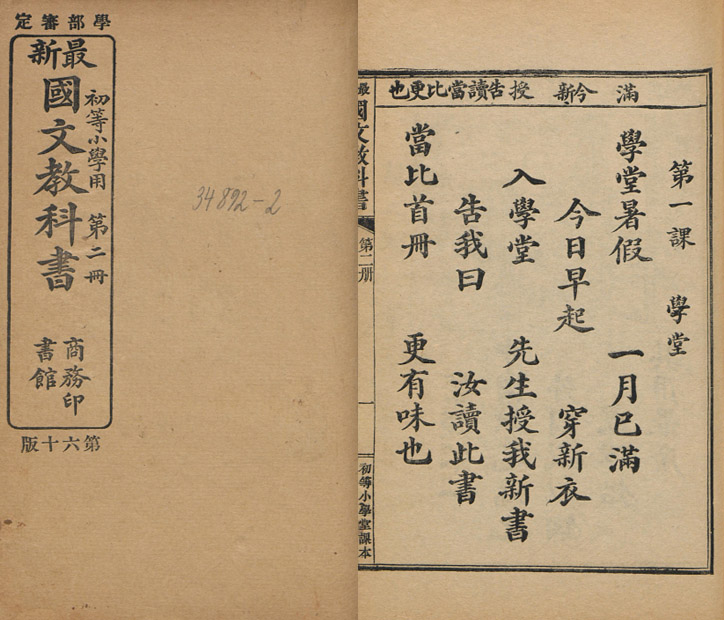 學部審定
最新
國文教科書
初等小學用 第二冊
商務印
書館
第六十版
34892-2
滿 今新 授 告讀當比更也
第一課 學堂
學堂暑假 一月已滿
今日早起 穿新衣
入學堂 先生授我新書
告我曰 汝讀此書
當比首冊 更有味也
最新國文教科書
第二册
一
初等小學堂課本